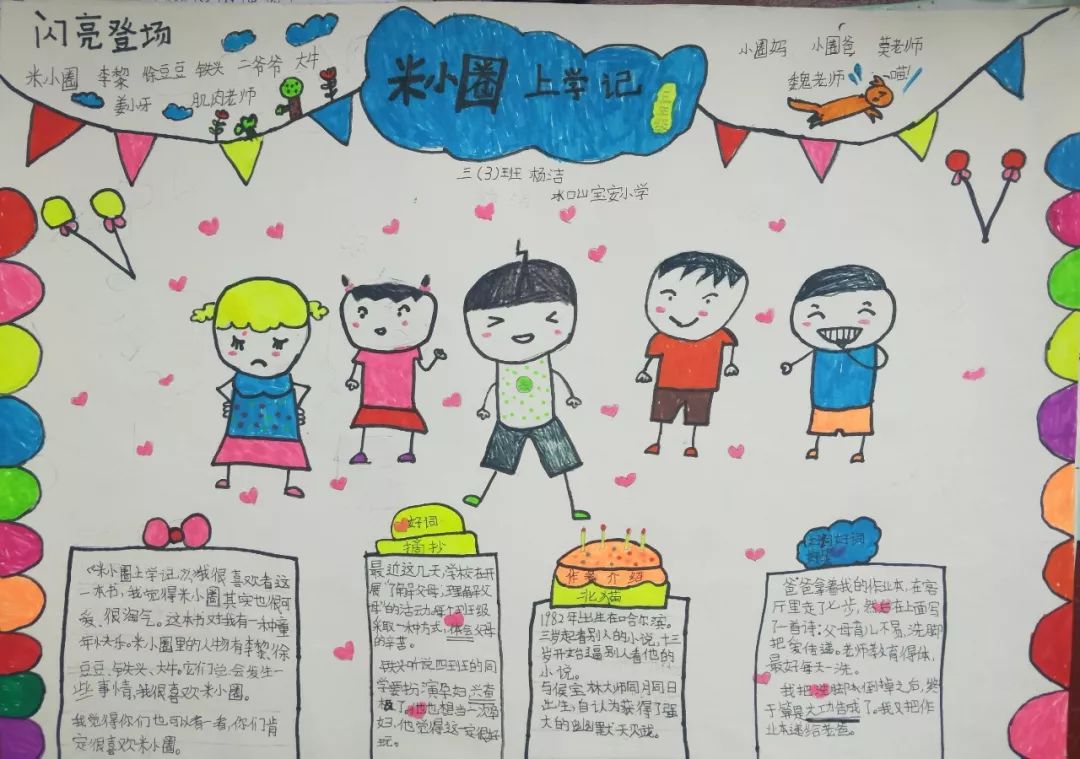 闪亮登场
米小圈 李黎 徐豆豆 铁头 二爷爷 大牛
姜小牙 肌肉老师
米小圈上学记
三年级
小圈妈 小圈爸 莫老师
魏老师 喵!
三(3)班 杨洁
水口山宝安小学
《米小圈上学记》,我很喜欢看这
一本书,我觉得米小圈其实也很可
爱、很淘气。这本书对我有一种童
年快乐。米小圈里的人物有李黎、徐
豆豆、铁头、大牛。它们总会发生一
些事情,我很喜欢米小圈。
我觉得你们也可以看一看,你们肯
定很喜欢米小圈。
好词
摘抄
最近这几天,学校在开
展"了解父母,理解父
母"的活动,每个班级
采取一种方式,体会父母
的辛苦。
铁头听说四班的同
学要扮演孕妇,兴奋
极了。他也想当一次孕
妇,他觉得这一定很好
玩。
作者介绍
北猫
1982年出生在哈尔滨。
三岁起看别人的小说,十三
岁开始逼别人看他的
小说。
与侯宝林大师同月同日
出生,自认为获得了强
大的幽默天赋。
好词
爸爸拿着我的作业本,在客
厅里走了七步,然后在上面写
了一首诗:父母育儿不易,洗脚
把爱传递。老师教育得体,
最好每天一洗。
我把洗脚水倒掉之后,终
于算是大功告成了。我又把作
业本递给老爸。